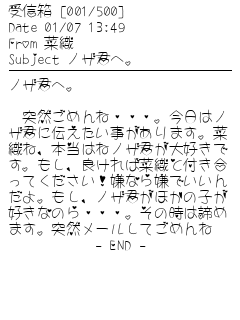 受信箱 [001/500]
Date 01/07 13:49
From 菜織
Subject ノザ君へ。
ノザ君へ。
　突然ごめんね・・・。今日はノ
ザ君に伝えたい事があります。菜
織ね、本当はねノザ君が大好きで
す。もし、良ければ菜織と付き合
ってください！嫌なら嫌でいいん
だよ。もし、ノザ君がほかの子が
好きなのら・・・。その時は諦め
ます。突然メールしてごめんね
- END -